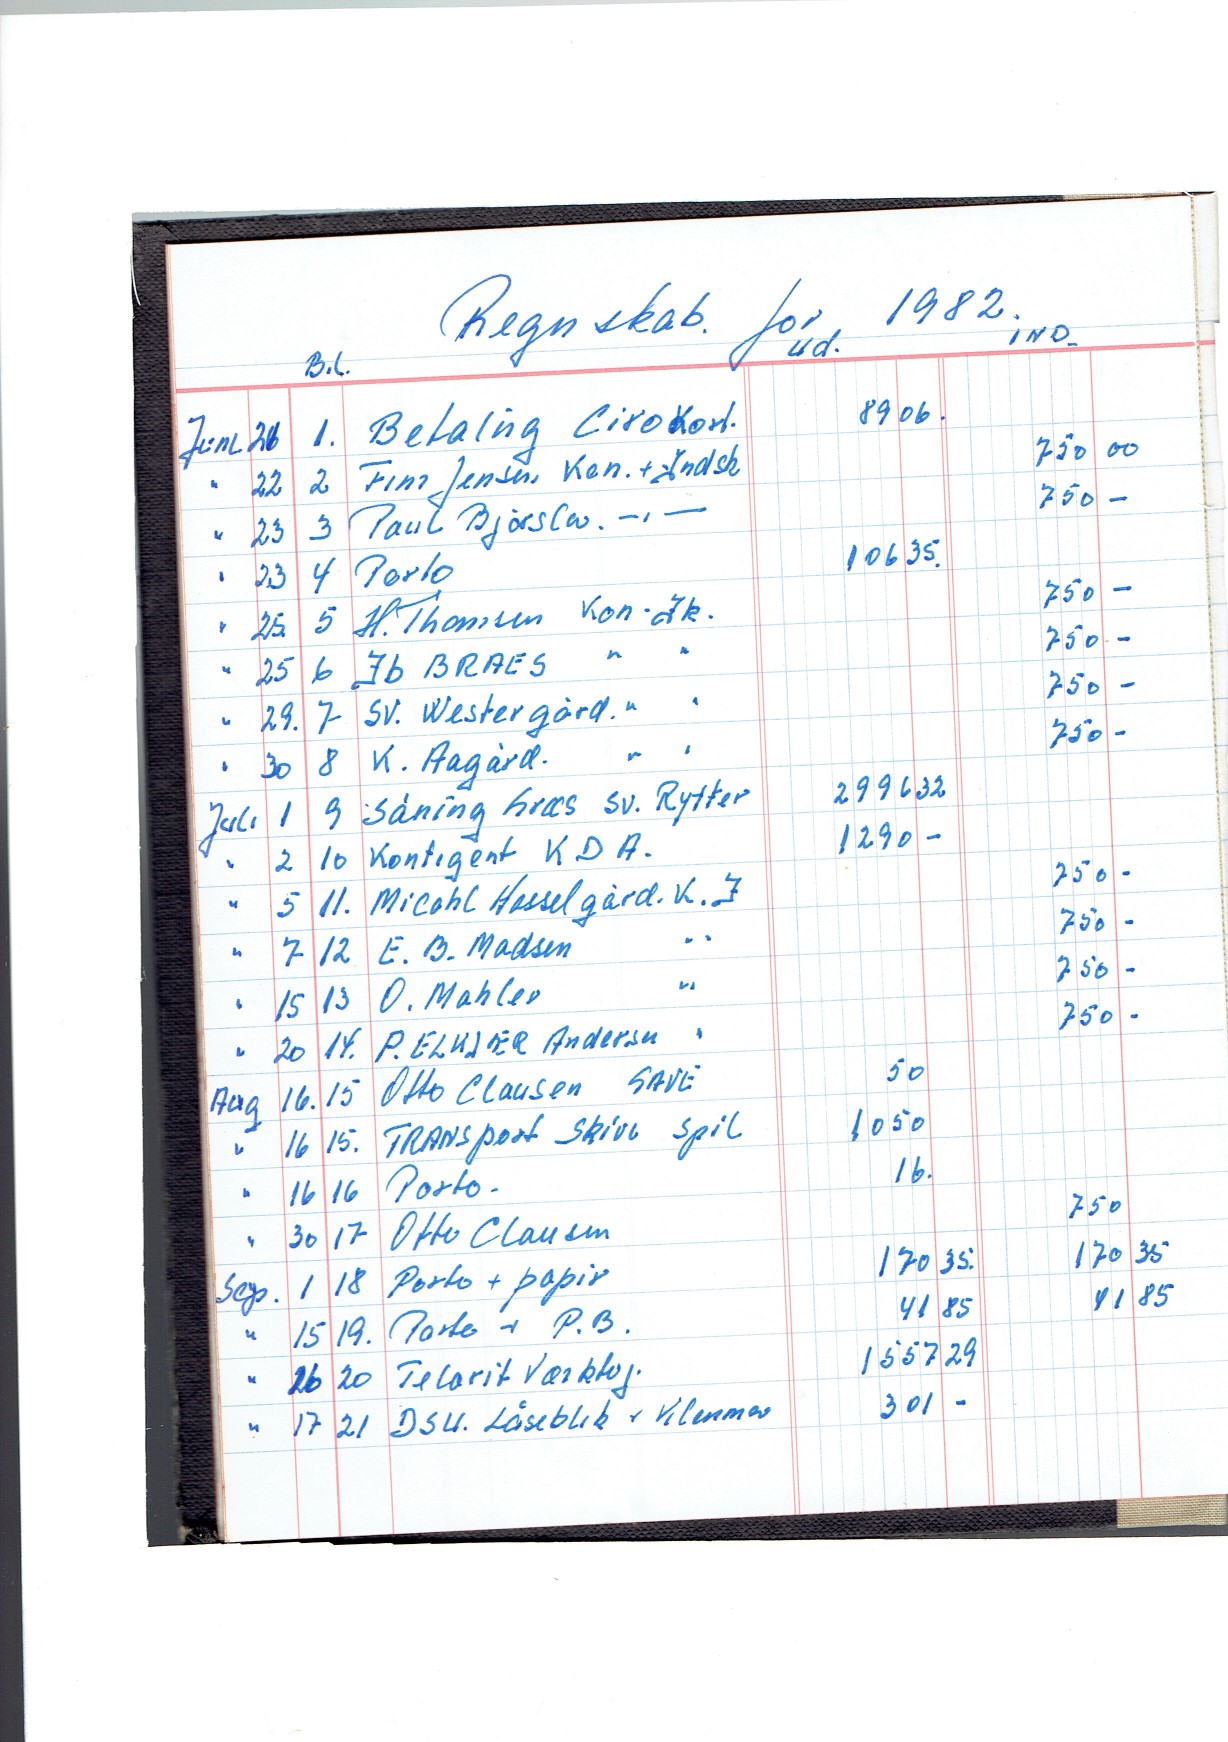 Regnskab. for 1982.
B.l. ud. IND.
Juni 21 1. Betaling Girokort. 89 06.
" 22 2 Finn Jensen Kon. + Indsk 750 00
" 23 3 Paul Bjørslev. -"- 750 -
" 23 4 Porto 106 35.
" 25. 5 H. Thomsen Kon - Ik. 750 -
" 25 6 Ib BRAES " " 750 -
" 29. 7 SV. Westergård. " " 750 -
" 30 8 K. Aagård. " " 750 -
Juli 1 9 Såning Græs Sv. Rytter 2996 32
" 2 10 Kontigent K D A. 1290 -
" 5 11. Micahl Hasselgård. K. I 750 -
" 7 12 E. B. Madsen " " 750 -
" 15 13 O. Mahler " " 750 -
" 20 14. P. ELKJÆR Andersen " 750 -
Aug 16. 15 Otto Clausen GAVE 50
" 16 15. TRANSport Skive spil 1050
" 16 16 Porto - 16.
" 30 17 Otto Clausen 750
Sep. 1 18 Porto + papir 170 35. 170 35
" 15 19. Porto + P.B. 41 85 41 85
" 26 20 Telarit Værktøj. 1557 29
" 17 21 Låseblik + 301 -